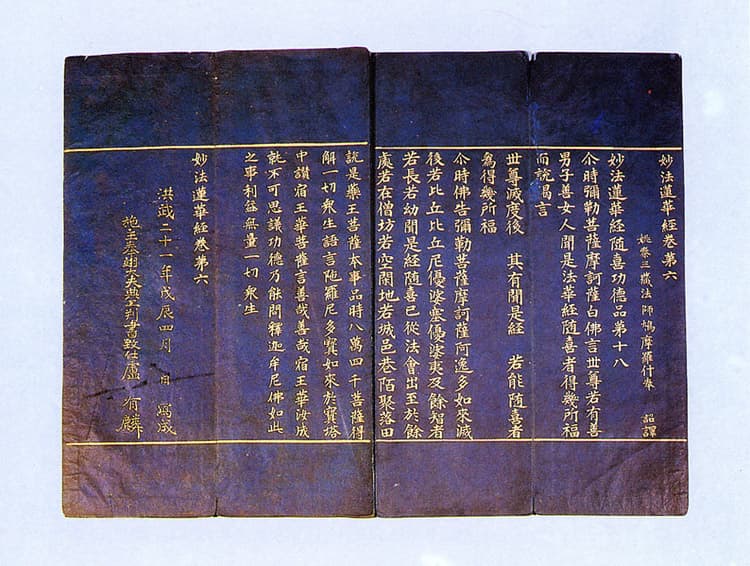 妙法蓮華經卷第六
姚秦三藏法師鳩摩羅什奉 詔譯
妙法蓮華經随喜功德品第十八
尒時彌勒菩薩摩訶薩白佛言世尊若有善
男子善女人聞是法華經随喜者得幾所福
而說偈言
世尊滅度後 其有聞是經 若能随喜者
爲得幾所福
尒時佛告彌勒菩薩摩訶薩阿逸多如來滅
後若比丘比丘尼優婆塞優婆夷及餘智者
若長若幼聞是經随喜已從法會出至於餘
處若在僧坊若空閑地若城邑巷陌聚落田
說是藥王菩薩本事品時八萬四千菩薩得
解一切衆生語言陁羅尼多寶如來於寶塔
中讃宿王華菩薩言善哉善哉宿王華汝成
就不可思議功德乃能問釋迦牟尼佛如此
之事利益無量一切衆生
妙法蓮華經卷第六
洪武二十一年戊辰四月 日 寫成
施主奉翊大夫典工判書致仕盧 有麟